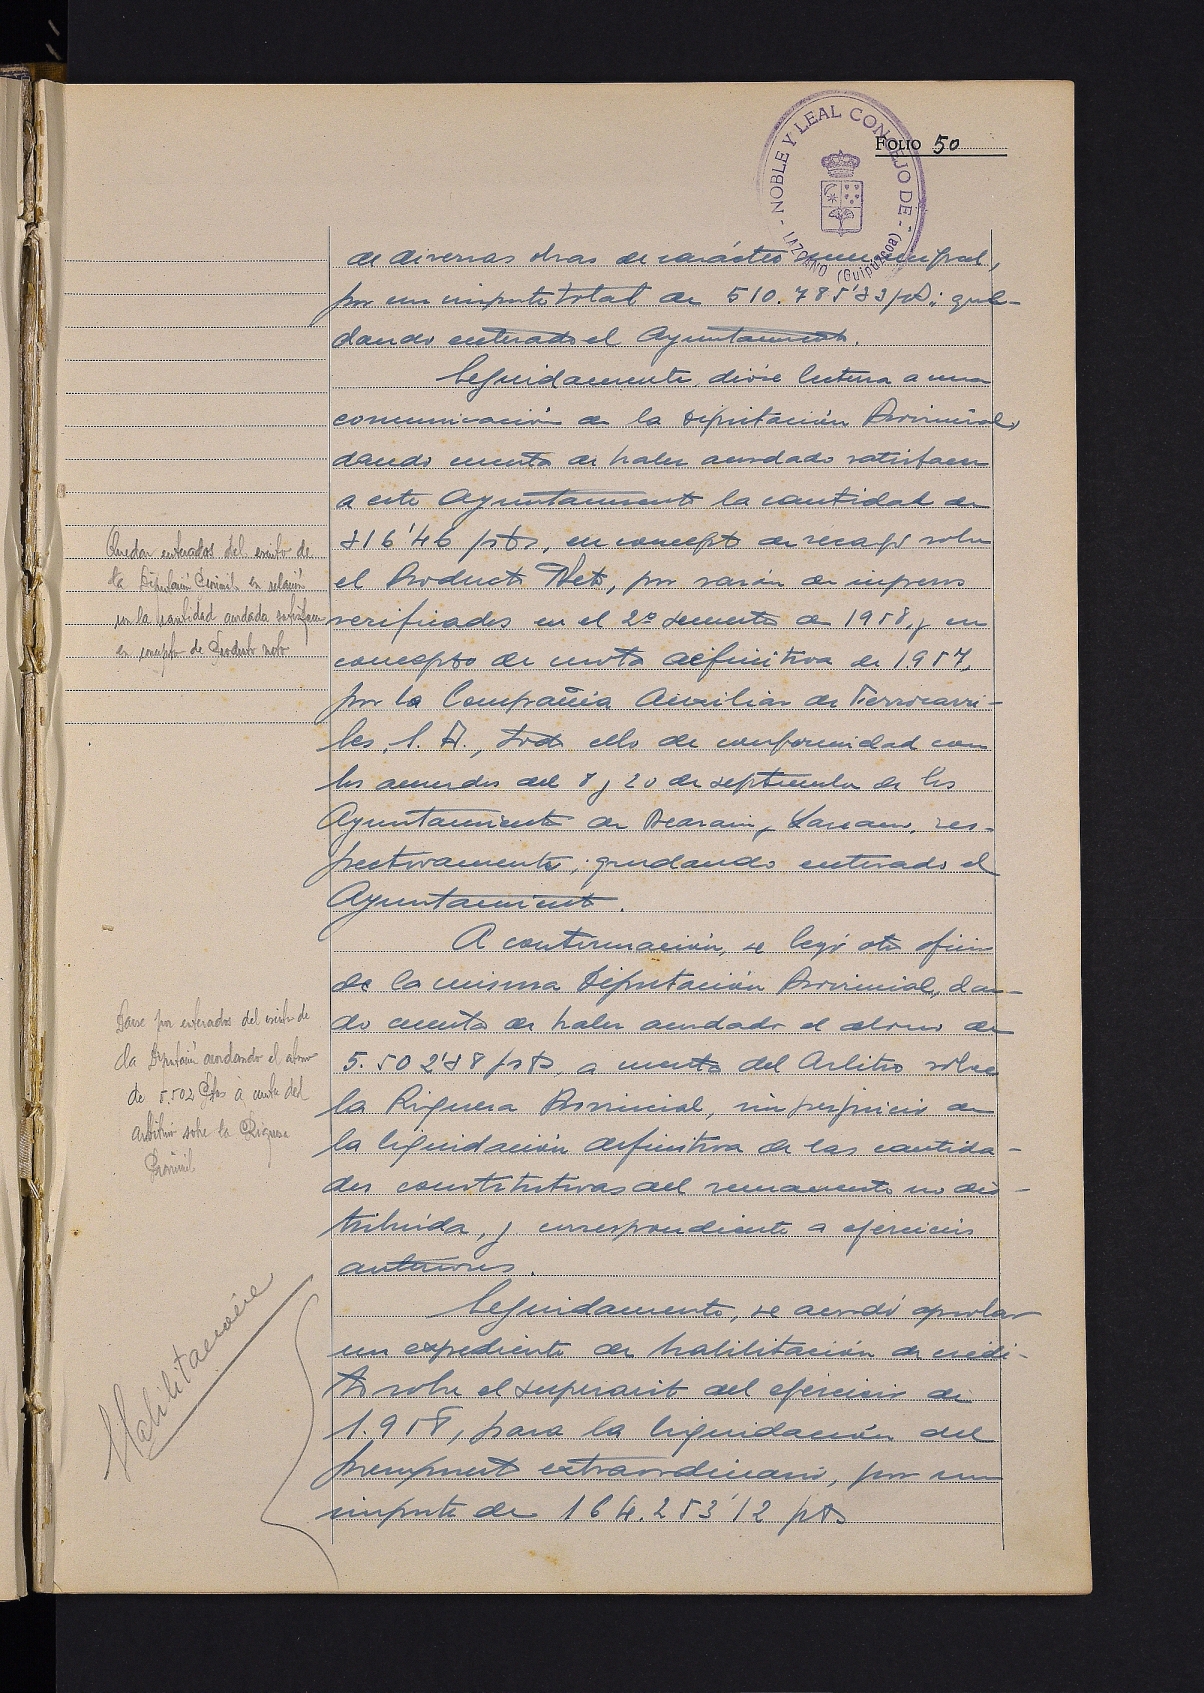 NOBLE Y LEAL CONCEJO DE
LAZCANO (Guipúzcoa)
FOLIO 50
de diversas obras de carácter municipal,
por un importe total de 510.785'33 pts; que-
dando enterado el Ayuntamiento.
Seguidamente, dióse lectura a una
comunicación de la Diputación Provincial,
dando cuenta de haber acordado satisfacer
a este Ayuntamiento la cantidad de
816'46 pts, en concepto de recargo sobre
el Producto Neto, por razón de ingresos
verificados en el 2º semestre de 1958, y en
concepto de cuota definitiva de 1957,
por la Compañía Auxiliar de Ferrocarri-
les, S. A., todo ello de conformidad con
los acuerdos del 8 y 20 de septiembre de los
Ayuntamientos de Beasain y Lazcano, res-
pectivamente; quedando enterado el
Ayuntamiento.
A continuación, se leyó otro oficio
de la misma Diputación Provincial, dan-
do cuenta de haber acordado el abono de
5.502'88 pts, a cuenta del Arbitrio sobre
la Riqueza Provincial, sin perjuicio de
la liquidación definitiva de las cantida-
des constitutivas del remanente no dis-
tribuida, y correspondiente a ejercicios
anteriores.
Seguidamente, se acordó aprobar
un expediente de habilitación de crédi-
tos sobre el superavit del ejercicio de
1.958, para la liquidación del
presupuesto extraordinario, por un
importe de 164.253'12 pts
Quedar enterados del escrito de
la Diputación Provincial, en relación
con la cantidad acordada satisfacer
en concepto de Producto neto
Darse por enterados del escrito de
la Diputación acordando el abono
de 5.502 Ptas a cuenta del
arbitrio sobre la Riqueza
Provincial
Habilitación